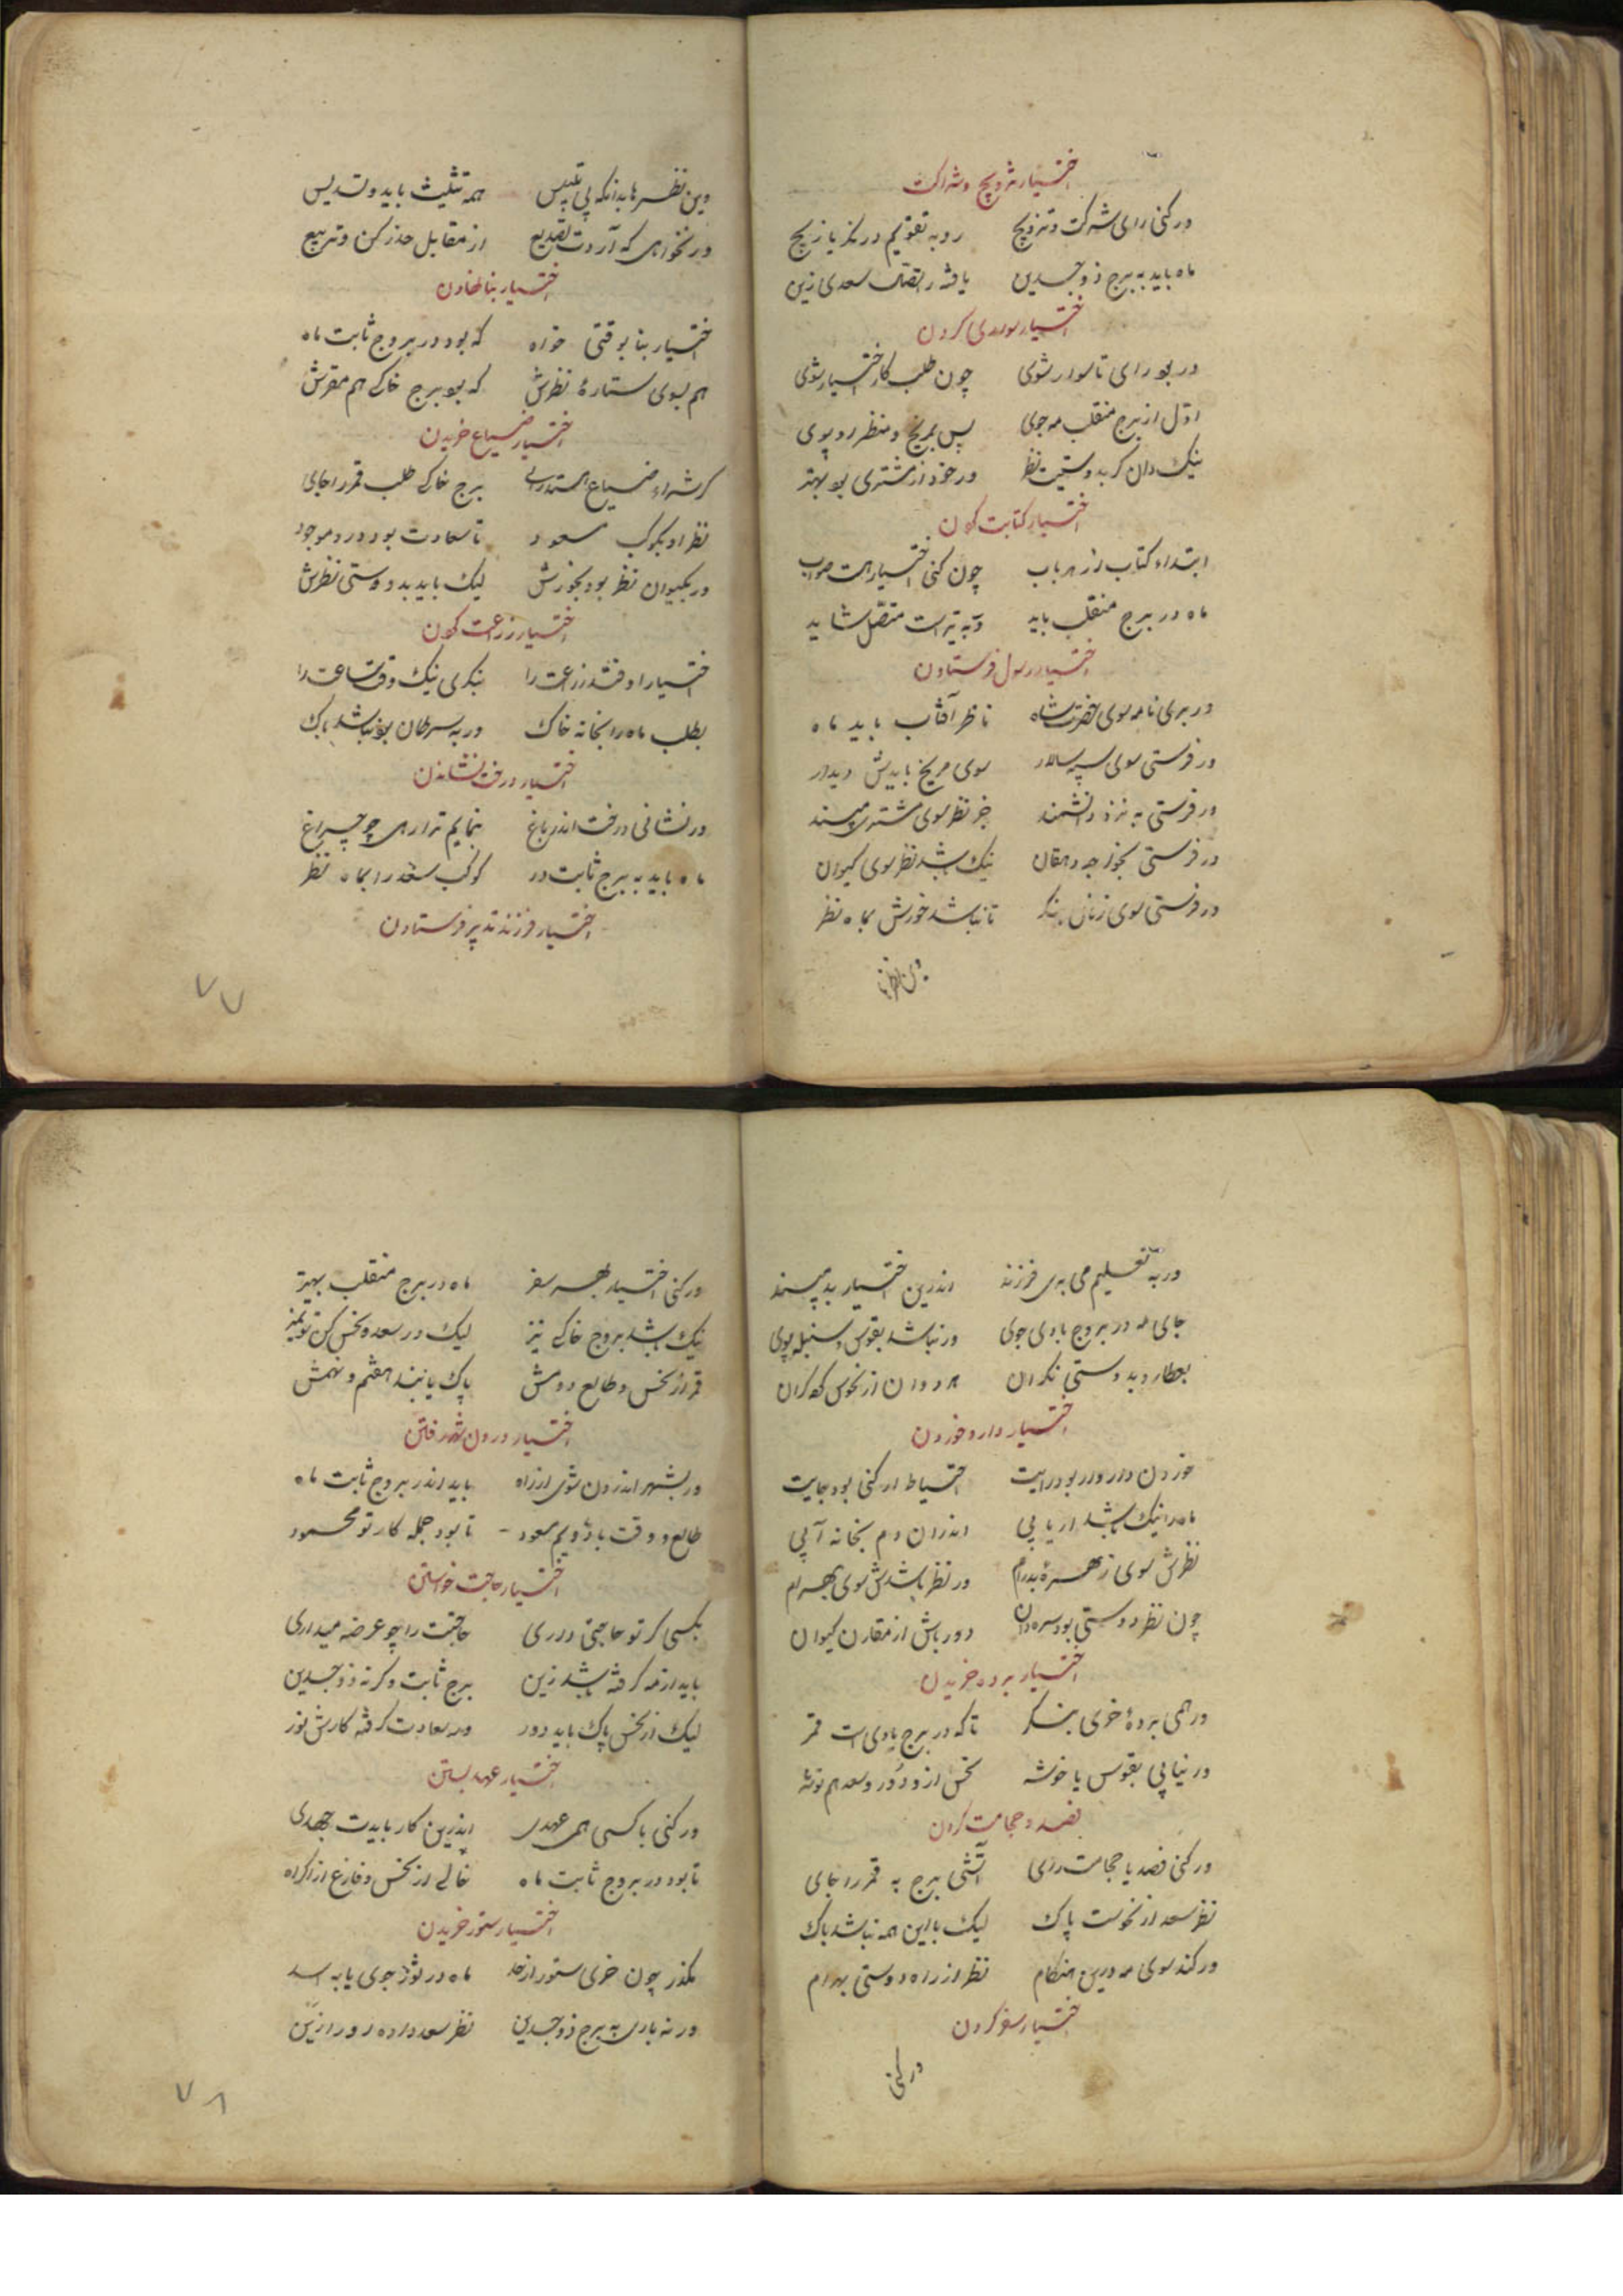 اختیار تزویج و شراکت
ور کنی رای شرکت و تزویج رو به تقویم در نکر یا زیج
ماه باید به برج ذوجسدین یافته اتصال سعدی زین
اختیار سواری کردن
ور بود رای تا سوار شوی چون طلب کار اختیار شوی
اول از برج منقلب مه جوی پس بمریخ و منظر او پوی
نیک دان کر بدوستیست نظر ور خود از مشتری بود بهتر
اختیار کتابت کردن
ابتداء کتاب از هر باب چون کنی اختیار هست صواب
ماه در برج منقلب باید ور به تیر است متصل شاید
اختیار رسول فرستادن
ور بری نامه سوی حضرت شاه ناظر آفتاب باید ماه
ور فرستی سوی سپه سالار سوی مریخ بایدش دیدار
ور فرستی به نزد دانشمند جز نظر سوی مشتری مپسند
ور فرستی بخواجه دهقان نیک باشد نظر سوی کیوان
ور فرستی سوی زنان بنکر تا نباشد خورش بماه نظر
وین نظرها
وین نظرها بدانکه بی تلبیس همه تثلیث باید و تسدیس
ور نخواهی که آردت تصدیع از مقابل حذر کن و تربیع
اختیار بنا نهادن
اختیار بنا بوقتی خواه که بود در بروج ثابت ماه
هم بسوی ستارهٔ نظرش که بود برج خاکی هم مقرش
اختیار ضیاع خریدن
کر شراء ضیاع هستت رای برج خاکی طلب قمر را جای
نظر او بکوکب مسعود تا سعادت بود درو موجود
ور بکیوان نظر بود بخورش لیک باید بدوستی نظرش
اختیار زراعت کردن
اختیار اوفتد زراعت را بنکری نیک وقت ساعت را
بطلب ماه را بخانه خاک ور به سرطان بود نباشد باک
اختیار درخت نشاندن
ور نشانی درخت اندر باغ بنمایم ترا رهی چو چراغ
ماه باید به برج ثابت در کوکب سعد را بماه نظر
اختیار فرزند بدبیر فرستادن
۷۷
ور به تعلیم می بری فرزند اندرین اختیار بد مپسند
جای مه در بروج بادی جوی ور نباشد بقوس و سنبله پوی
بعطارد بدوستی نکران هر دوان از نحوس کرده کران
اختیار دارو خوردن
خوردن دارو ار بود رایت احتیاط ار کنی بود جایت
ماه را نیک باشد ار یابی اندران دم بخانه آبی
نظرش سوی زهره پدرام ور نظر باشدش سوی بهرام
چون نظر دوستی بود سره دان دور باش از مقارن کیوان
اختیار برده خریدن
ور همی بردهٔ خری بنکر تا که در برج بادی است قمر
ور نیابی بقوس یا خوشه نحس ازو دور و سعد هم توشه
فصد و حجامت کردن
ور کنی فصد یا حجامت رای آتشی برج به قمر را جای
نظر سعد از نحوست پاک لیک با این همه نباشد باک
ور کند سوی مه درین هنکام نظر از راه دوستی بهرام
اختیار سفر کردن
ور کنی
ور کنی اختیار بهر سفر ماه در برج منقلب بهتر
نیک باشد بروج خاکی نیز لیک در سعد و نحس کن تو تمیز
قمر از نحس و طالع و دومش پاک یابند هفتم و نهمش
اختیار درون شهر رفتن
ور بشهر اندرون شوی از راه باید اندر بروج ثابت ماه
طالع وقت با دویم مسعود تا بود جمله کار تو محمود
اختیار حاجت خواستن
بکسی کر تو حاجتی داری حاجتت را چو عرضه میداری
باید از مه کرفته باشد زین برج ثابت و کرنه ذوجسدین
لیک از نحس پاک باید دور وز سعادت کرفته کارش نور
اختیار عهد بستن
ور کنی با کسی همی عهدی اندرین کار بایدت جهدی
تا بود در بروج ثابت ماه خالی از نحس و فارغ از اکراه
اختیار ستور خریدن
مکذر چون خری ستور از حد ماه در ثور جوی یا به اسد
ور نه باری به برج ذوجسدین نظر سعد داده او را زین
۷۸